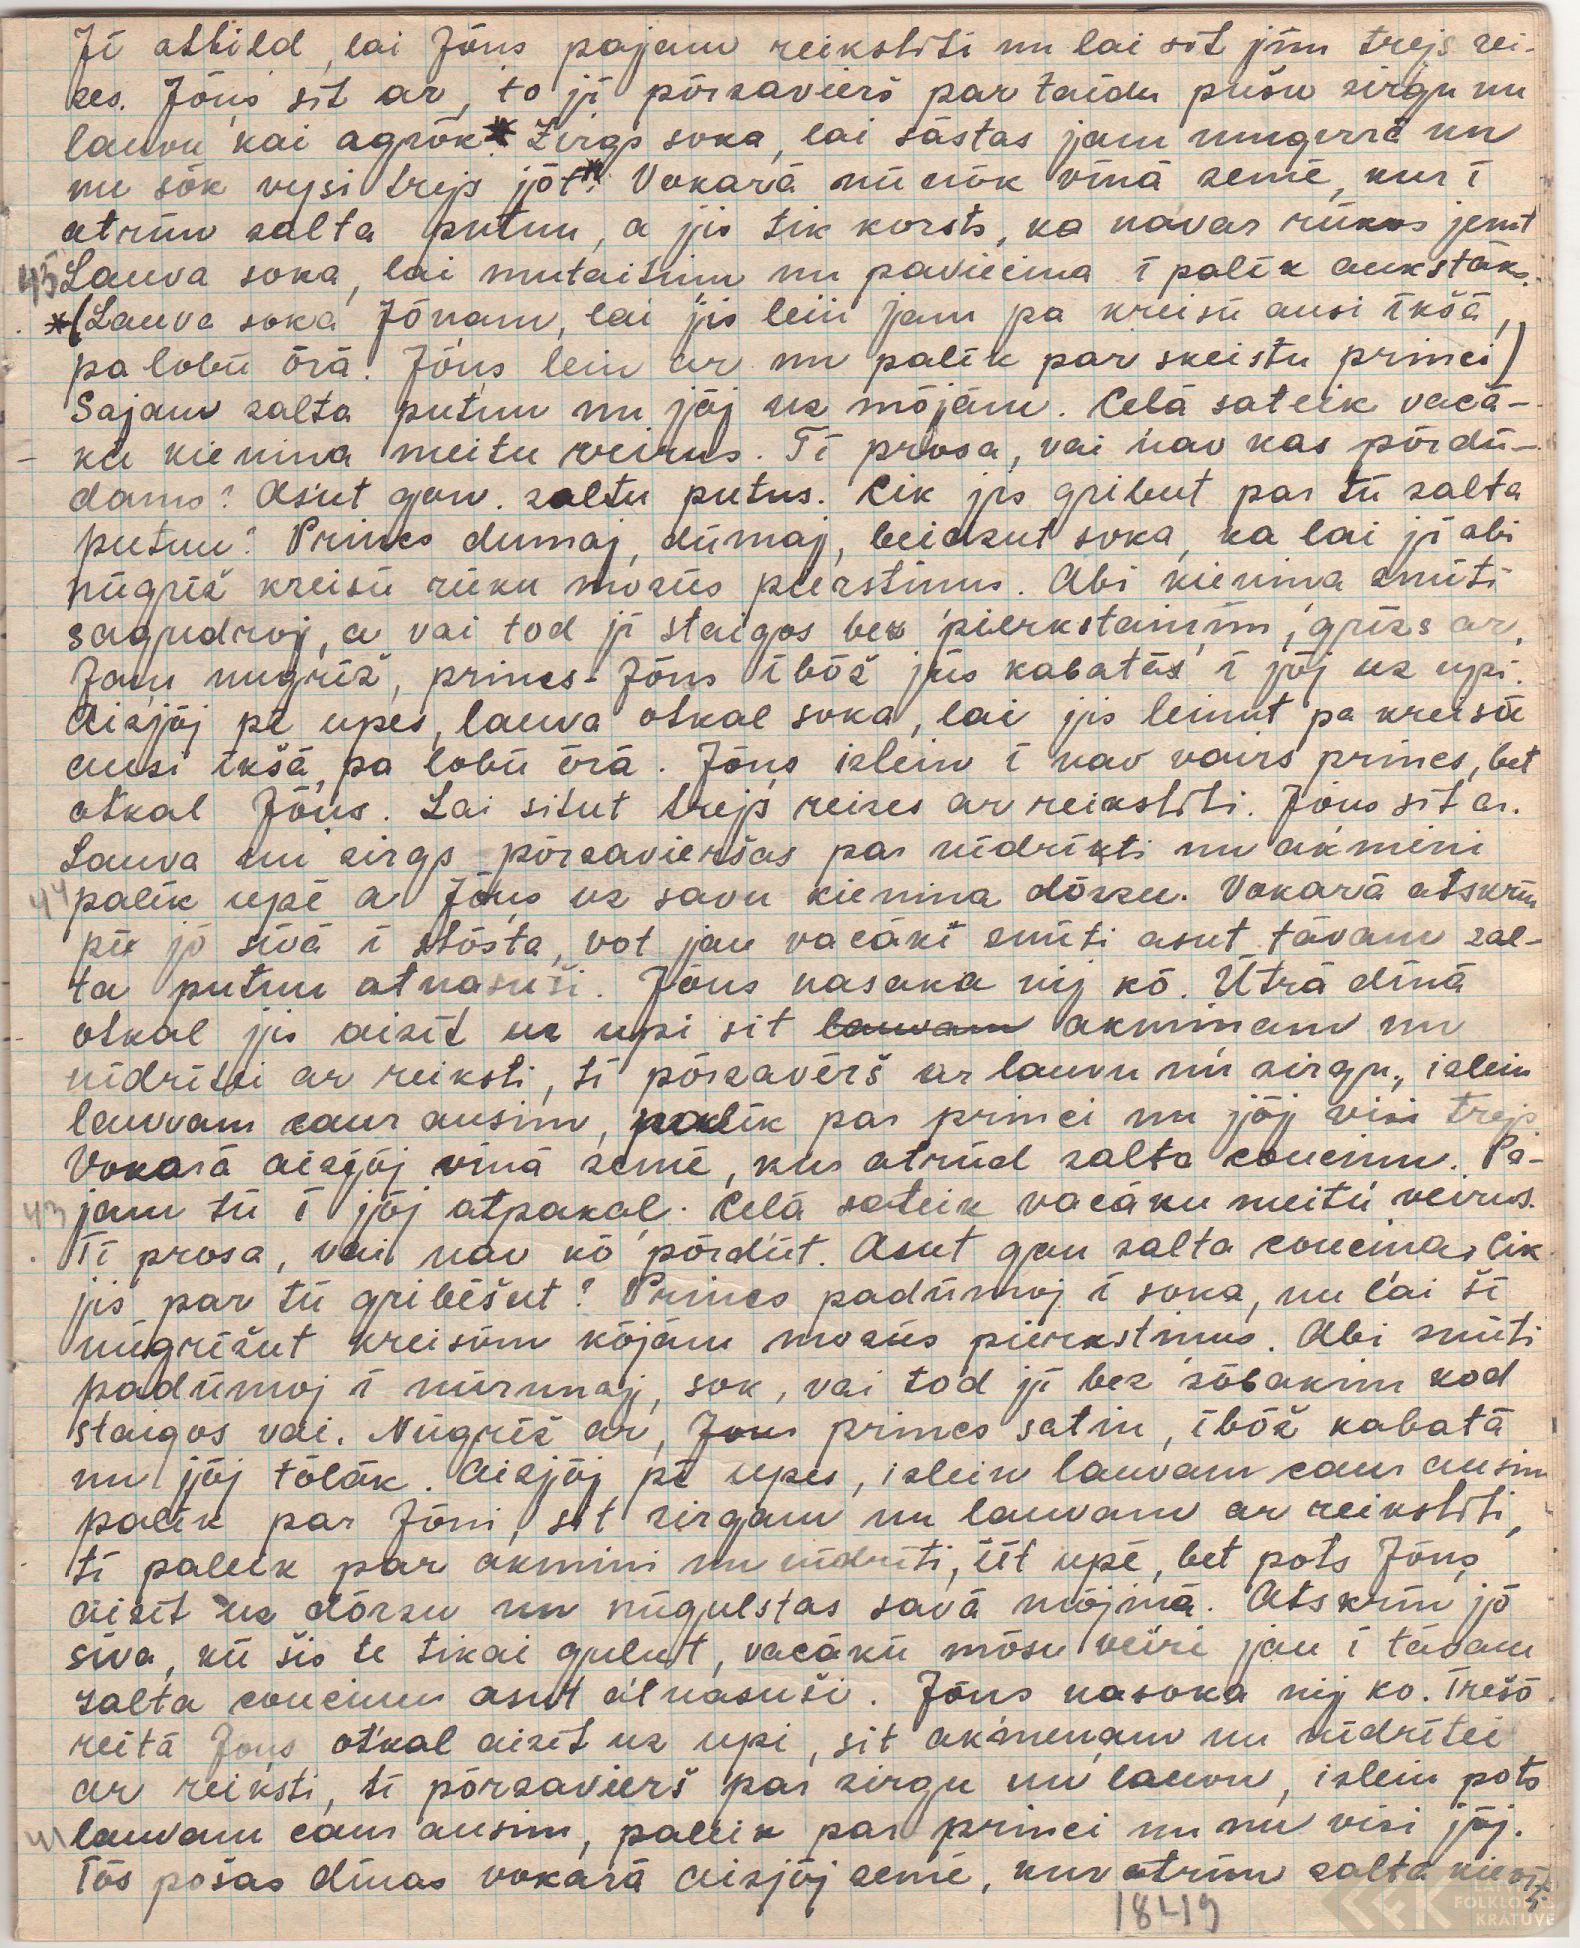 Jī atbild, lai Jōņs pajam reikstīti un lai sit jīm trejs rei-
zes. Jōņs sit ar, to jī pōrsavierš par taidu pušu zirgu un
lauvu kai agrōk.* Zirgs soka, lai sāstas jam mugurā un
nu sōk vysi trejs jōt*. Vokarā nūnōk vīnā zemē, kur ī
atrūn zalta putnu, a jis tik korsts, ka navar rūkos jemt
45 Lauva soka, lai mutaitiņu nu pavīcina ī palīk aukstōks.
*(Lauva soka Jōņam, lai jis lein jam pa kreisū ausi īkšā,
pa lobū ōrā. Jōņs lein ar un palīk par skeistu princi)
Sajam zalta putnu un jōj uz mōjām. Ceļā sateik vacā-
kū kieniņa meitu veirus. Tī prosa, vai nav kas pōrdū-
dams? Asut gon. zaltu putns. Cik jis gribut par tū zalta
putnu? Princs dumoj, dūmoj, beidzut soka, ka lai jī abi
nūgrīž kreisū rūku mozūs pierstiņus. Abi kieniņa znūti
sagudroj, a vai tod jī staigos bez pierkstaiņim, grīzs ar.
Jam nugrīž, princs-Jōņs ībōž jūs kabatās ī jōj uz upi.
Aizjōj pī upes, lauva otkal soka, lai jis leinut pa kreisū
ausi īkšā, pa lobū ōrā. Jōņs izlein ī nav vairs princs, bet
otkal Jōņs. Lai situt trejs reizes ar reikstīti. Jōņs sit ar.
Lauva un zirgs pōrsavieršas par nīdrīkti un akmini
44 palīk upē a Jōņs uz savu kieniņa dōrzu. Vokarā atskrīn
pi jō sīvā ī stōsta, vot jau vacākī znūti asut tāvam zal-
ta putnu atnasuši. Jōņs nasaka nij kō. Ūtrā dīnā
otkal jis aizīt uz upi sit akminam un
nīdrītei ar reiksti, tī pōrsavērš ar lauvu un zirgu, izlein
lauvam caur ausim, palīk par princi un jōj visi trejs
Vokarā aizjōj vīnā zemē, kur atrūd zalta couciņu. Pa-
43 jam tū ī jōj atpakaļ. Ceļā sateik vacāku meitu veirus.
Tī prosa, vai nav kō pōrdūt. Asut gon zalta couciņa, Cik
jis par tū gribēšut? Princs padūmoj ī soka, nu lai šī
nūgrīžut kreisōm kōjōm mozūs pierkstiņus. Abi znūti
padūmoj ī nūrunoj, sok, vai tod jī bez zōbakim kod
staigos vai. Nūgrīž ar, princs satin, ībōž kabatā
un jōj tōlōk. Aizjōj pī upes, izlein lauvam caur ausim
palīk par Jōni, sit zirgam un lauvam ar reikstīti,
tī paleik par akmini un nīdrīti, īīt upē, bet pots Jōņs
aizīt uz dōrzu un nūgulstas savā mōjiņā. Atskrīn jō
sīva, kū šis te tikai gulut, vacākū mōsu veiri jau ī tāvam
zalta couciņu asut atnasuši. Jōņs nasoka nij ko. Trešō
reitā Jōņs otkal aizīt uz upi, sit akmeņam un nīdrītei
ar reiksti, tī pōrsavierš par zirgu un lauvu, izlein pots
41 lauvam caur ausim, paleik par princi un nu visi jōj.
Tōs pošas dīnas vokarā aizjōj zemē, kur atrūn zalta
18419
FOLKLORAS
KRĀTUVE